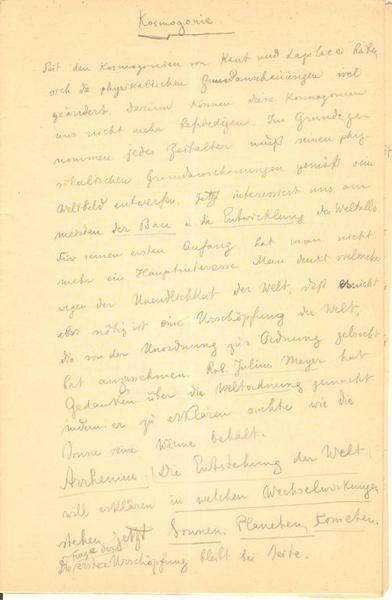 Kosmogonie
Seit den Kosmogonien von Kant und Laplace haben
sich die physikalischen Grundanschauungen viel
geändert. Darum können diese Kosmogonien
uns nicht mehr befriedigen. Im Grunde ge-
nommen jedes Zeitalter muß seinen phy-
sikalischen Grundanschauungen gemäß sein
Weltbild entwerfen. Jetzt interessiert uns am
meisten der Bau u die Entwicklung des Weltalls
Für seinen ersten Anfang hat man nicht
mehr ein Hauptinteresse Man denkt vielmehr
wegen der Unendlichkeit der Welt, daß nicht
nötig ist eine Urschöpfung der Welt,
die von der Unordnung zur Ordnung gebracht
hat anzunehmen. Rob. Julius Meyer hat
Gedanken über die Weltordnung gemacht
indem er zu erklären suchte wie die
Sonne seine Wärme behält.
Arrhenius: Die Entstehung der Welt
will erklären in welchen Wechselwirkungen
stehen jetzt Sonnen, Planeten, Kometen.
Die Frage der ersten Urschöpfung bleibt bei Seite.